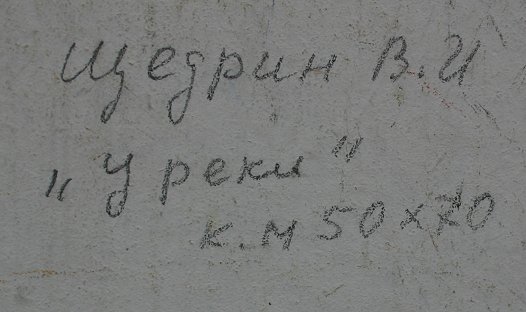 Щедрин В.И
„У реки"
к.м 50x70